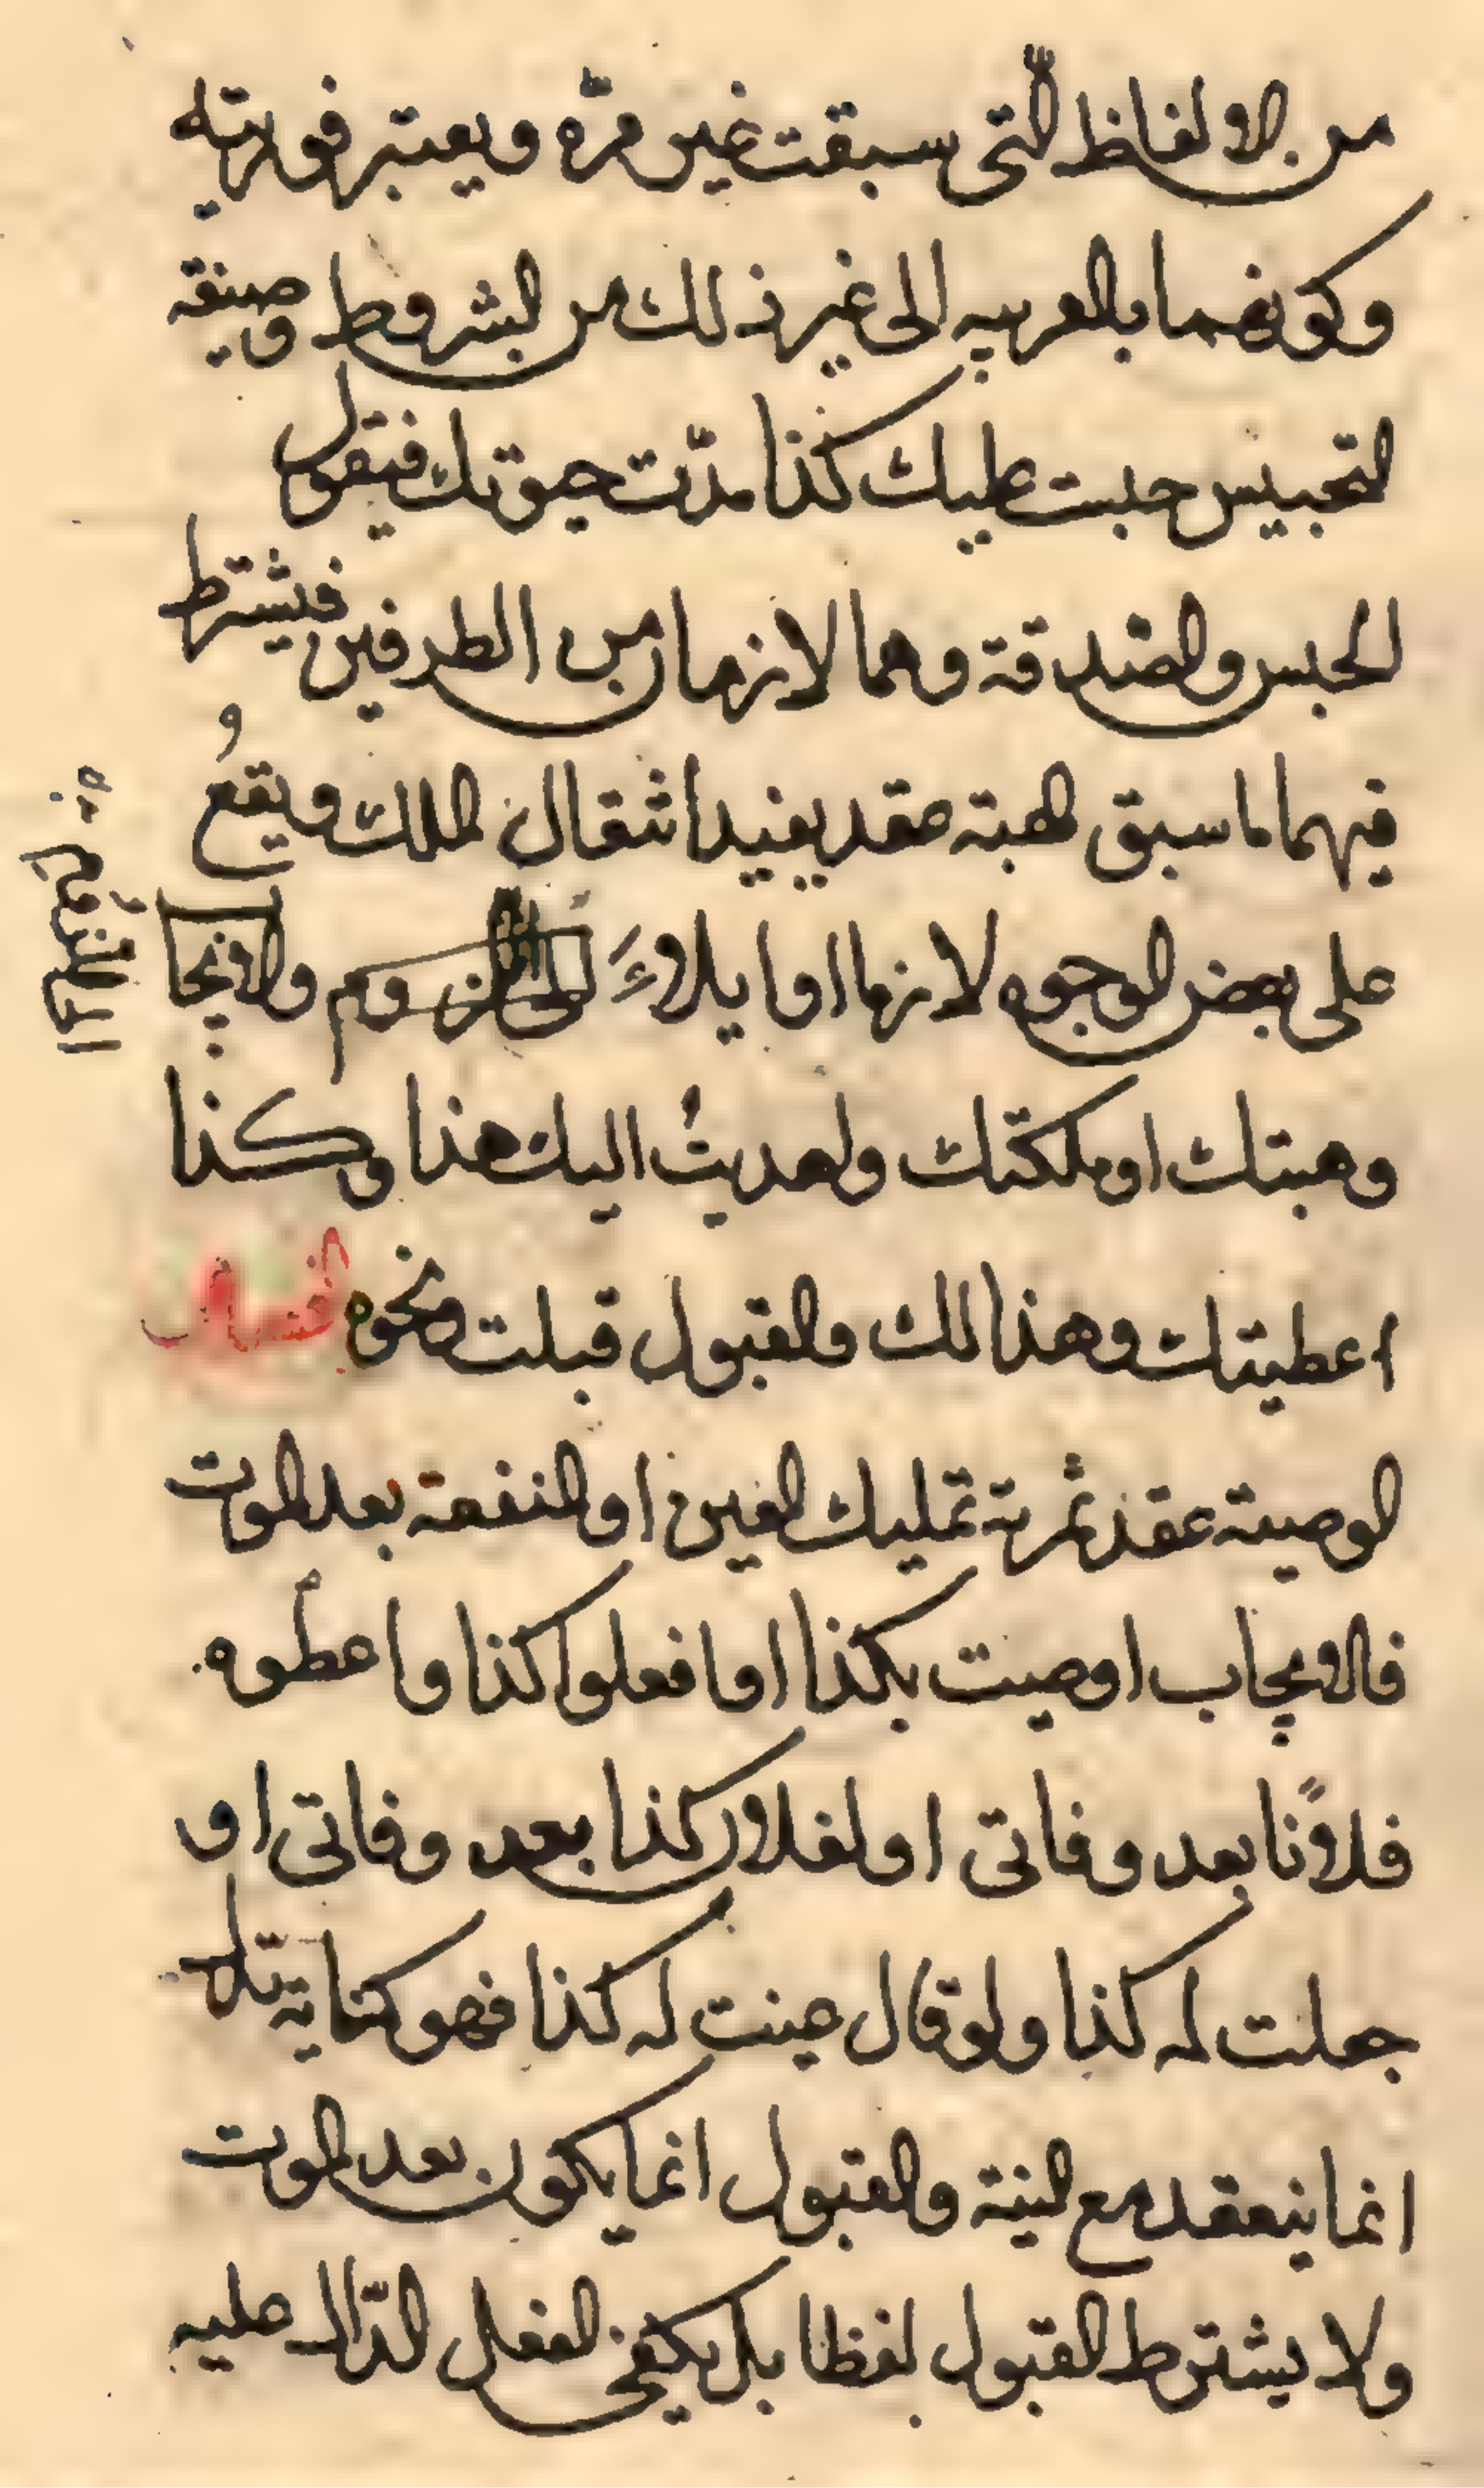 من الالفاظ الّتى سبقت غير مرّه ويعتبر فوريته
وكونهما بالعربيه الى غير ذلك من الشروط وصيغه
التحبيس حبست عليك كذا مدّت حيوتك فيقول
الحبس والصدقة وهما لازمان من الطرفين فيشترط
فيهما ما سبق الهبة عقد يفيد انتقال الملك ويقعُ
على بعض الوجوه لازما او ايلاءً الى اللزوم والايجا
وهبتك او ملكتك واهديتُ اليك هذا وكذا
اعطيتك وهذا لك والقبول قبلت ونحوه فصل
الوصية عقد ثمرته تمليك العين او المنفعة بعد الموت
فالايجاب اوصيت بكذا او افعلوا كذا واعطوه
فلانًا بعد وفاتى او لفلان كذا بعد وفاتى او
جعلت له كذا ولو قال عينت له كذا فهو كناية
انما ينعقد مع النية والقبول انما يكون بعد الموت
ولا يشترط القبول لفظا بل يكفى الفعل الدّال عليه